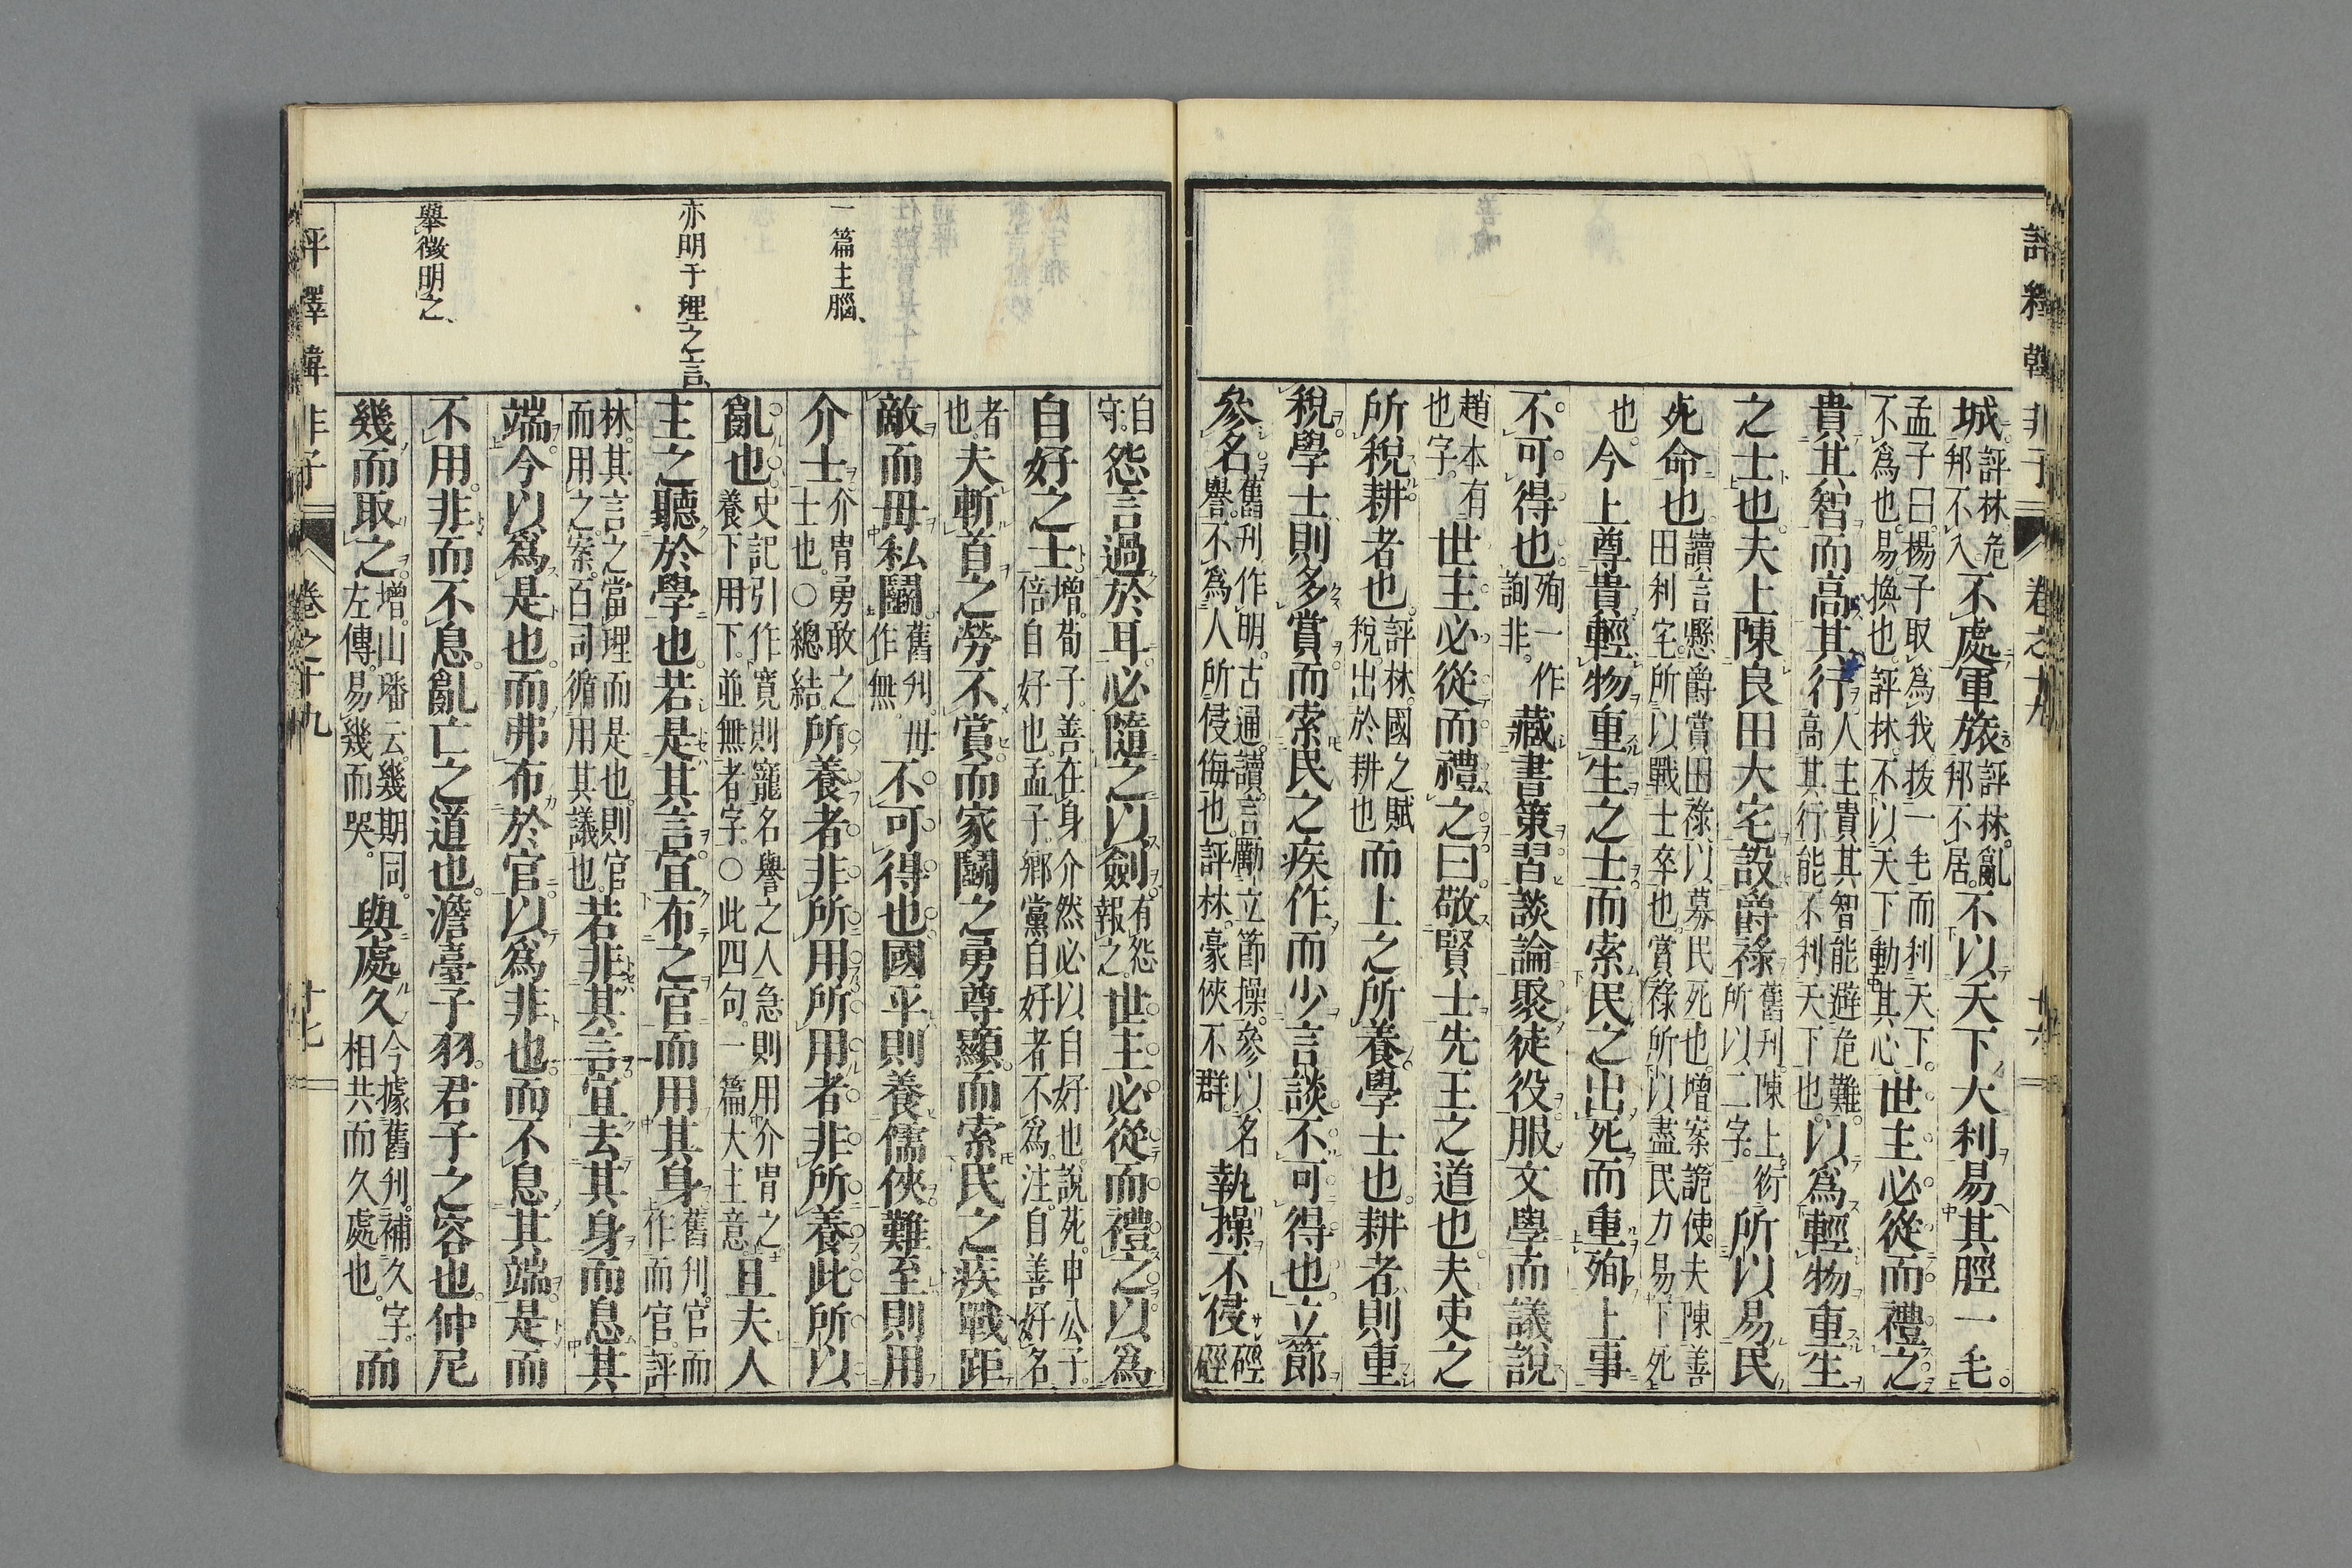 評釋韓非子 卷之十九 十六
城評林危邦不入不處軍旅評林亂邦不居不以天下大利易其脛一毛
孟子曰楊子取爲我拔一毛而利天下不爲也易換也評林不以天下動其心世主必從而禮之
貴其智而高其行人主貴其智能避危難高其行能不利天下也以爲輕物重生
之士也夫上陳良田大宅設爵祿舊刋陳上衍所以二字所以易民
死命也讀言懸爵賞田祿以募民死也增案詭使夫陳善田利宅所以戰士卒也賞祿所以盡民力易下死
也今上尊貴輕物重生之士而索民之出死而重殉上事
不可得也殉一作詢非藏書策習談論聚徒役服文學而議說
趙本有也字世主必從而禮之曰敬賢士先王之道也夫吏之
所稅耕者也評林國之賦稅出於耕也而上之所養學士也耕者則重
稅學士則多賞而索民之疾作而少言談不可得也立節
參名舊刋作明古通讀言勵立節操參以名譽不爲人所侵侮也評林豪俠不群執操不侵硜硜
自守怨言過於耳必隨之以劍有怨報之世主必從而禮之以爲
自好之士增荀子善在身介然必以自好也說苑申公子倍自好也孟子鄉黨自好者不爲注自善好名
者也夫斬首之勞不賞而家鬭之勇尊顯而索民之疾戰距
敵而毋私鬭舊刋毋作無不可得也國平則養儒俠難至則用
介士介冑勇敢之士也○總結所養者非所用所用者非所養此所以
亂也史記引作寬則寵名譽之人急則用介冑之士養下用下並無者字○此四句一篇大主意且夫人
主之聽於學也若是其言宜布之官而用其身舊刋官而作而官評
林其言之當理而是也則官而用之案百司循用其議也若非其言宜去其身而息其
端今以爲是也而弗布於官以爲非也而不息其端是而
不用非而不息亂亡之道也澹臺子羽君子之容也仲尼
幾而取之增山璠云幾期同左傳易幾而哭與處久今據舊刋補久字相共而久處也而
一篇主腦
亦明于理之言
舉徵明之
評釋韓非子 卷之十九 十七